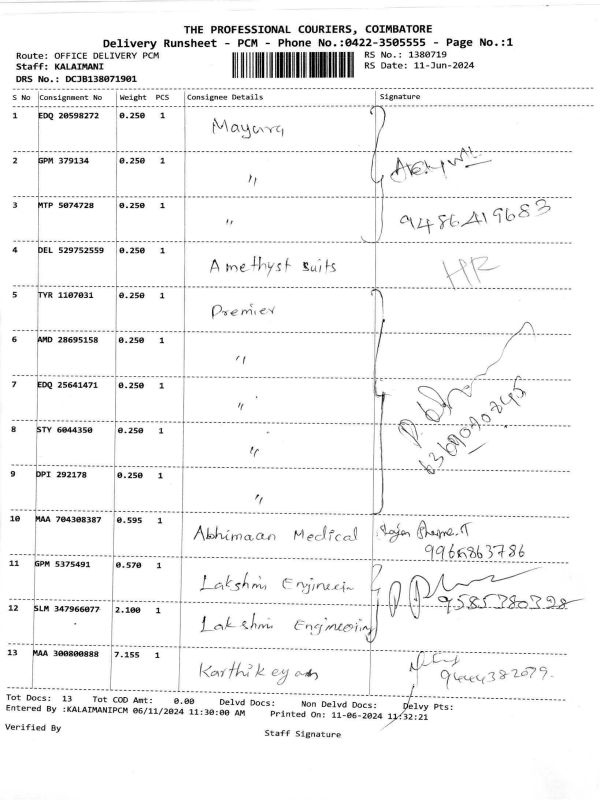 THE PROFESSIONAL COURIERS, COIMBATORE
Delivery Runsheet - PCM - Phone No.:0422-3505555 - Page No.:1
Route: OFFICE DELIVERY PCM RS No.: 1380719
Staff: KALAIMANI RS Date: 11-Jun-2024
DRS No.: DCJB138071901
S No Consignment No Weight PCS Consignee Details Signature
1 EDQ 20598272 0.250 1 Mayura
2 GPM 379134 0.250 1 "
3 MTP 5074728 0.250 1 " 9486419683
4 DEL 529752559 0.250 1 Amethyst Suits HR
5 TYR 1107031 0.250 1 Premier
6 AMD 28695158 0.250 1 "
7 EDQ 25641471 0.250 1 "
8 STY 6044350 0.250 1 "
9 DPI 292178 0.250 1 "
10 MAA 704308387 0.595 1 Abhimaan Medical
11 GPM 5375491 0.570 1 Lakshmi
9585380398
12 SLM 347966077 2.100 1 Lakshmi Engineering
13 MAA 300800888 7.155 1 Karthikeyan
9444382079.
Tot Docs: 13 Tot COD Amt: 0.00 Delvd Docs: Non Delvd Docs: Delvy Pts:
Entered By :KALAIMANIPCM 06/11/2024 11:30:00 AM Printed On: 11-06-2024 11:32:21
Verified By Staff Signature